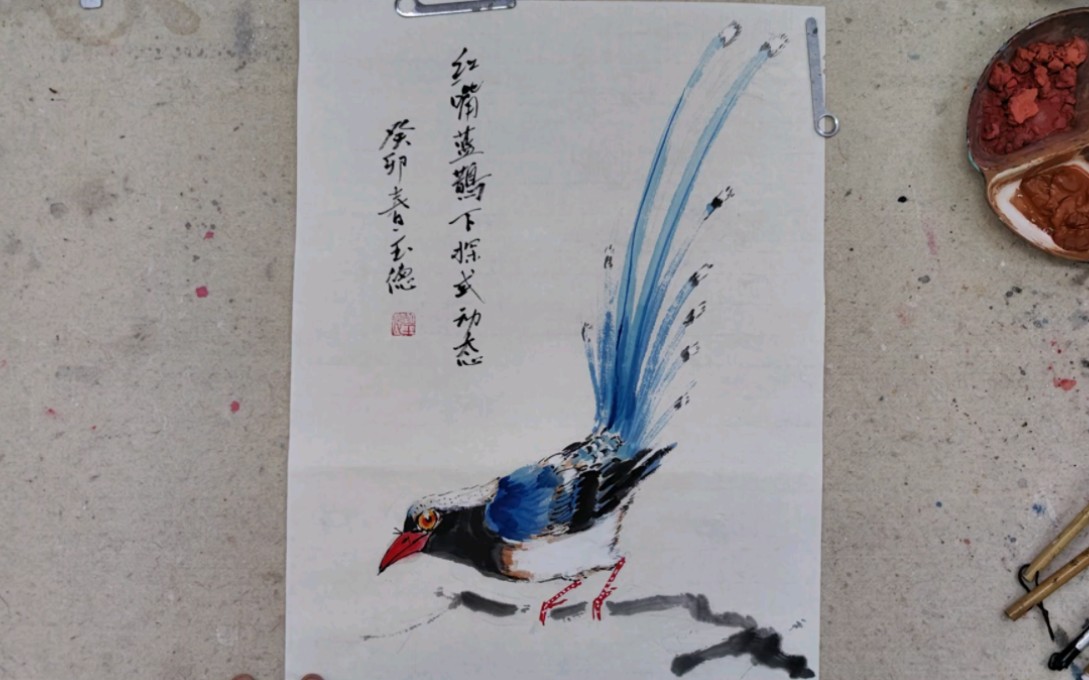 红嘴蓝鹊下探式动态
癸卯春玉德